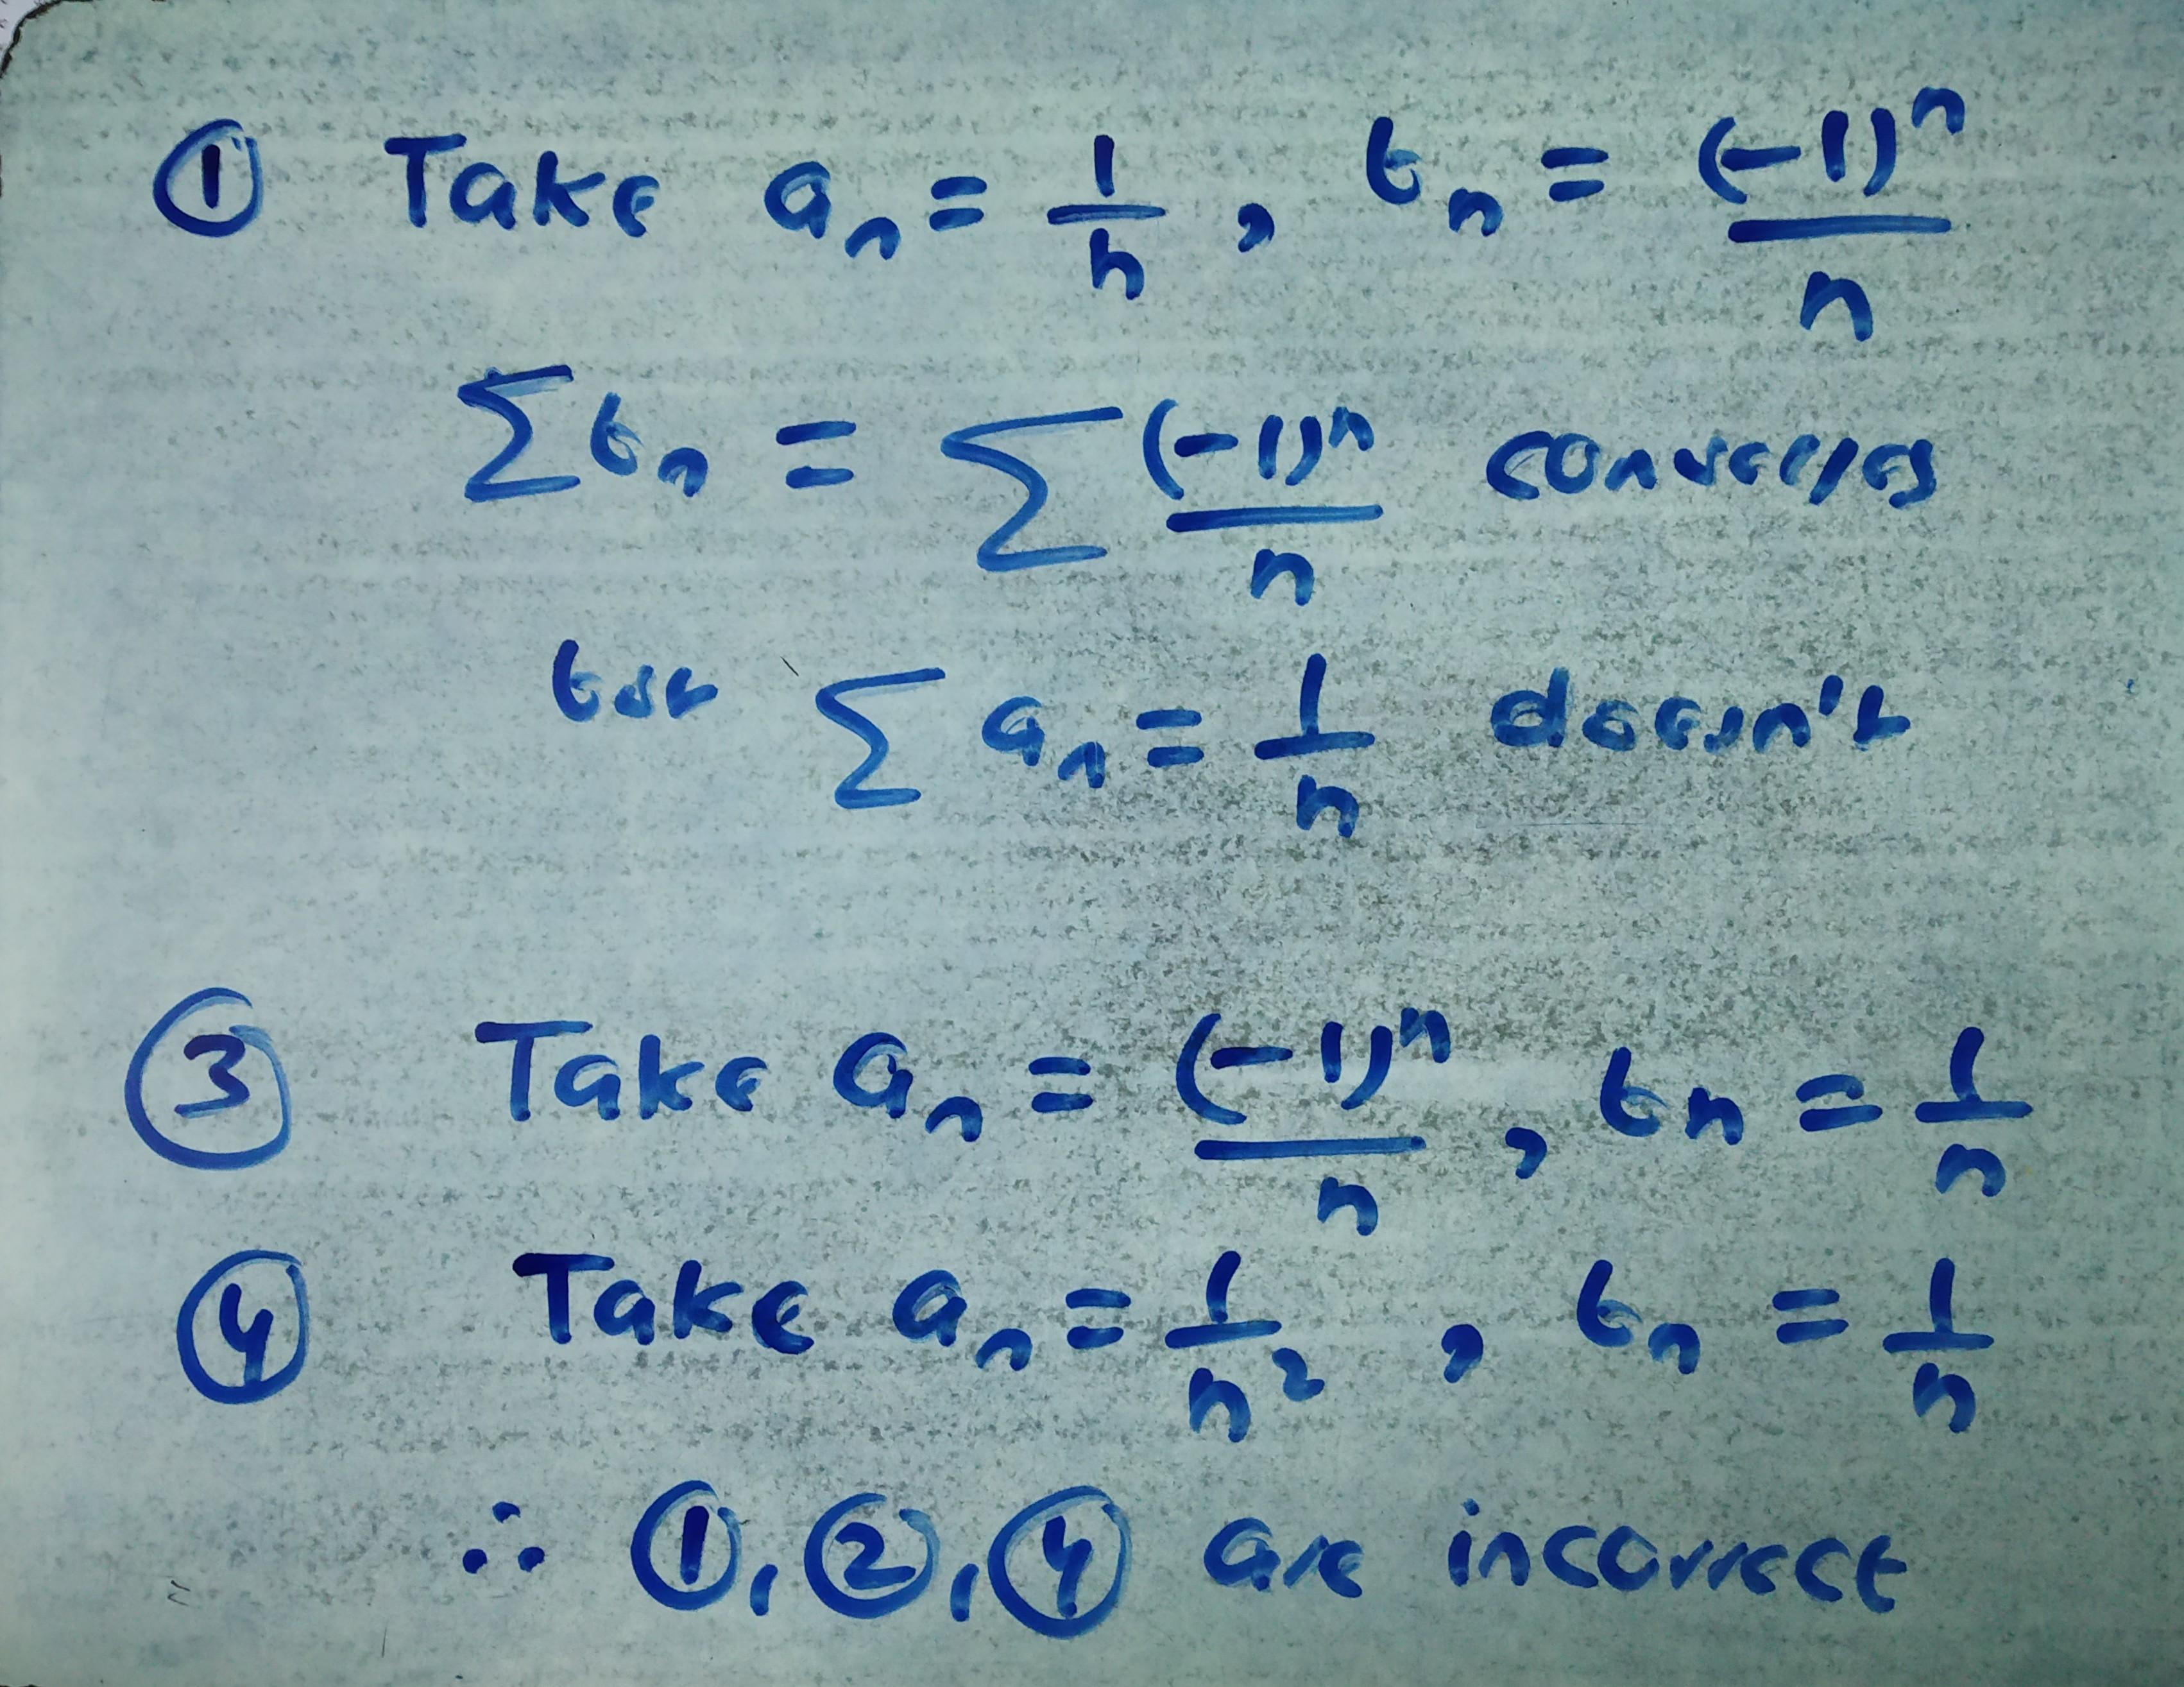 ① Take aₙ = 1/n , bₙ = (-1)ⁿ/n
∑bₙ = ∑ (-1)ⁿ/n converges
but ∑ aₙ = 1/n doesn't
③ Take aₙ = (-1)ⁿ/n , bn = 1/n
④ Take aₙ = 1/n² , bₙ = 1/n
∴ ①, ②, ④ are incorrect